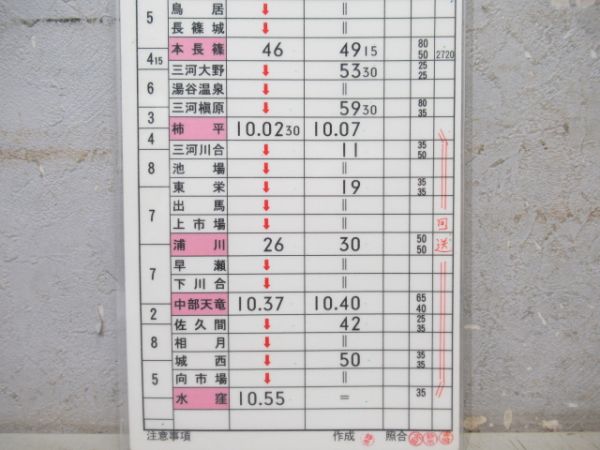 5 鳥居 ↓ ||
長篠城 ↓ ||
本長篠 46 49 15 80 50 2720
4 15 三河大野 ↓ 53 30 25 25
6 湯谷温泉 ↓ ||
三河槇原 ↓ 59 30 80 35
3 柿平 10.02 30 10.07
4 三河川合 ↓ 11 35 50
8 池場 ↓ ||
東栄 ↓ 19 35 35
7 出馬 ↓ ||
上市場 ↓ || 回
浦川 26 30 50 50 送
7 早瀬 ↓ ||
下川合 ↓ ||
中部天竜 10.37 10.40 65 40
2 佐久間 ↓ 42 25 35
8 相月 ↓ ||
城西 ↓ 50 35 35
5 向市場 ↓ ||
水窪 10.55 = 35
注意事項 作成 照合